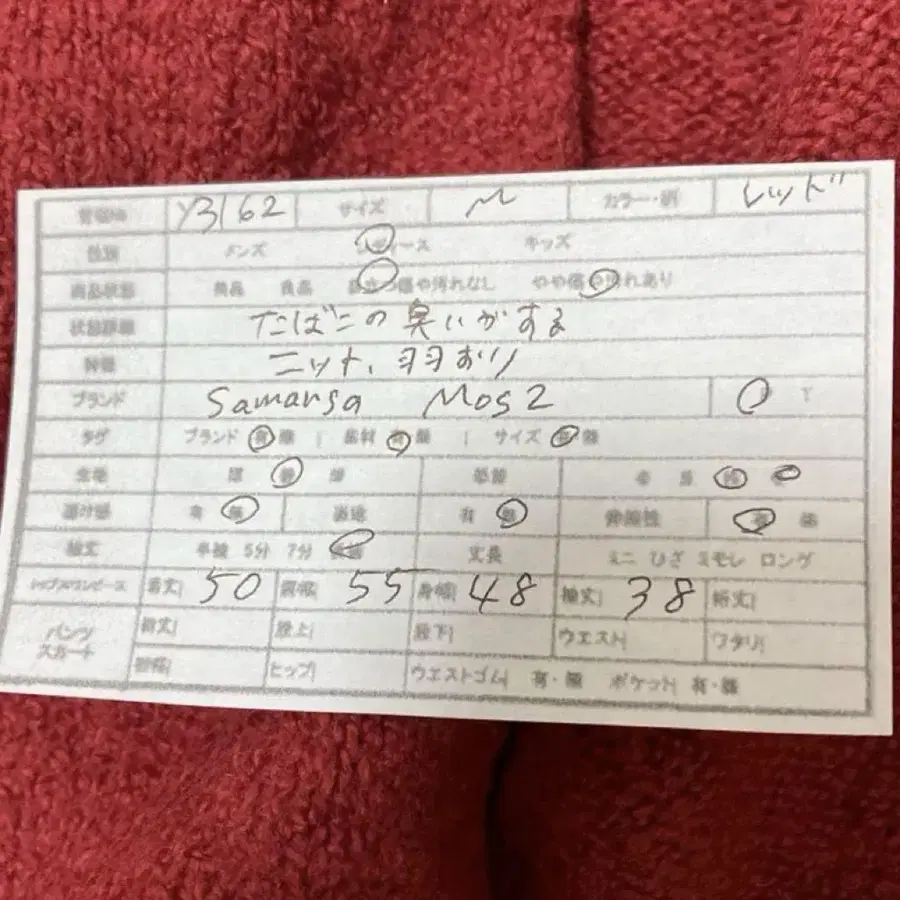 管理No Y3162 サイズ M カラー・柄 レッド
性別 メンズ レディース キッズ
商品状態 美品 良品 目立つ傷や汚れなし やや傷や汚れあり
状態詳細 たばこの臭いがする
特徴 ニット、羽おり
ブランド Samansa Mos2
タグ ブランド 有 無 | 素材 有 無 | サイズ 有 無
生地 厚 普 薄 季節 春 夏 秋 冬
透け感 有 無 裏地 有 無 伸縮性 有 無
袖丈 半袖 5分 7分 丈長 ミニ ひざ ミモレ ロング
トップス/ワンピース 着丈 50 肩幅 55 身幅 48 袖丈 38 裄丈
パンツ スカート 総丈 股上 股下 ウエスト ワタリ
裾幅 ヒップ ウエストゴム 有・無 ポケット 有・無